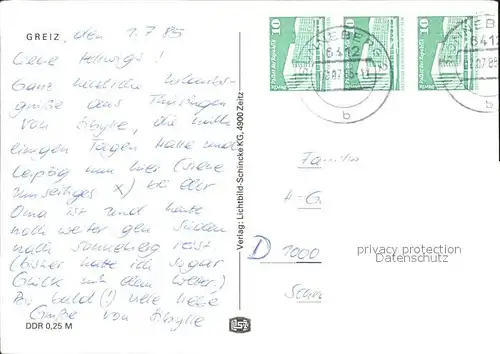 GREIZ, den 1.7.85
Liebe Hellwigs!
Ganz herzliche Urlaubs-
grüße aus Thüringen
von Sibylle, die nach
einigen Tagen Halle und
Leipzig nun hier (siehe
umseitiges X) bei der
Oma ist und heute
noch weiter gen Süden
nach Sonneberg reist
(bisher hatte ich sogar
Glück mit dem Wetter!)
Bis bald(!) viele liebe
Grüße von Sibylle
DDR 0,25 M
Verlag: Lichtbild-Schincke KG, 4900 Zeitz
10 10 10
Palast der Republik
Berlin
NNEBERG
6412
02.07.85-11
b
NEBERG
6412
02.07.85
b
Familie
H-G.
D 1000
privacy protection
Datenschutz